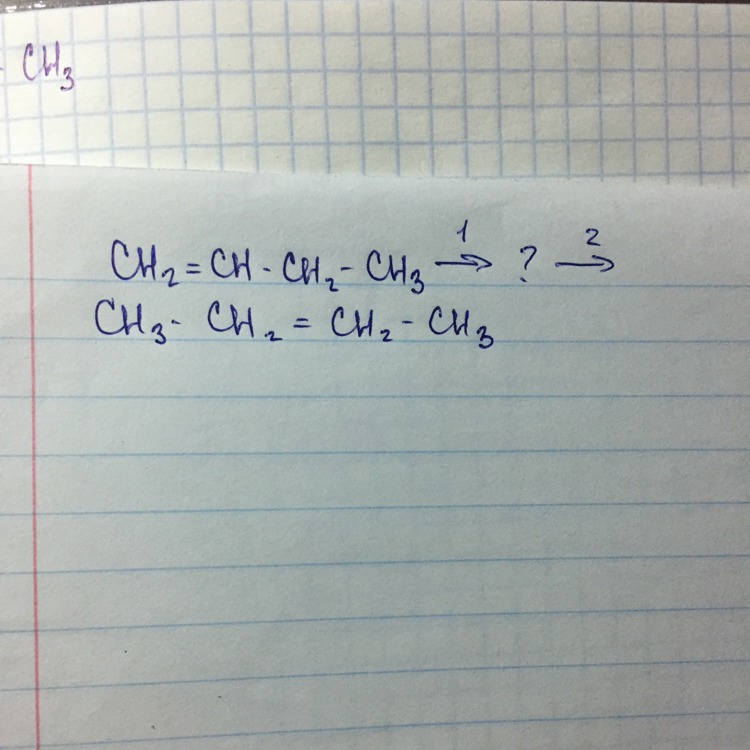 - CH₃
CH₂ = CH - CH₂ - CH₃ →¹ ? →²
CH₃ - CH₂ = CH₂ - CH₃